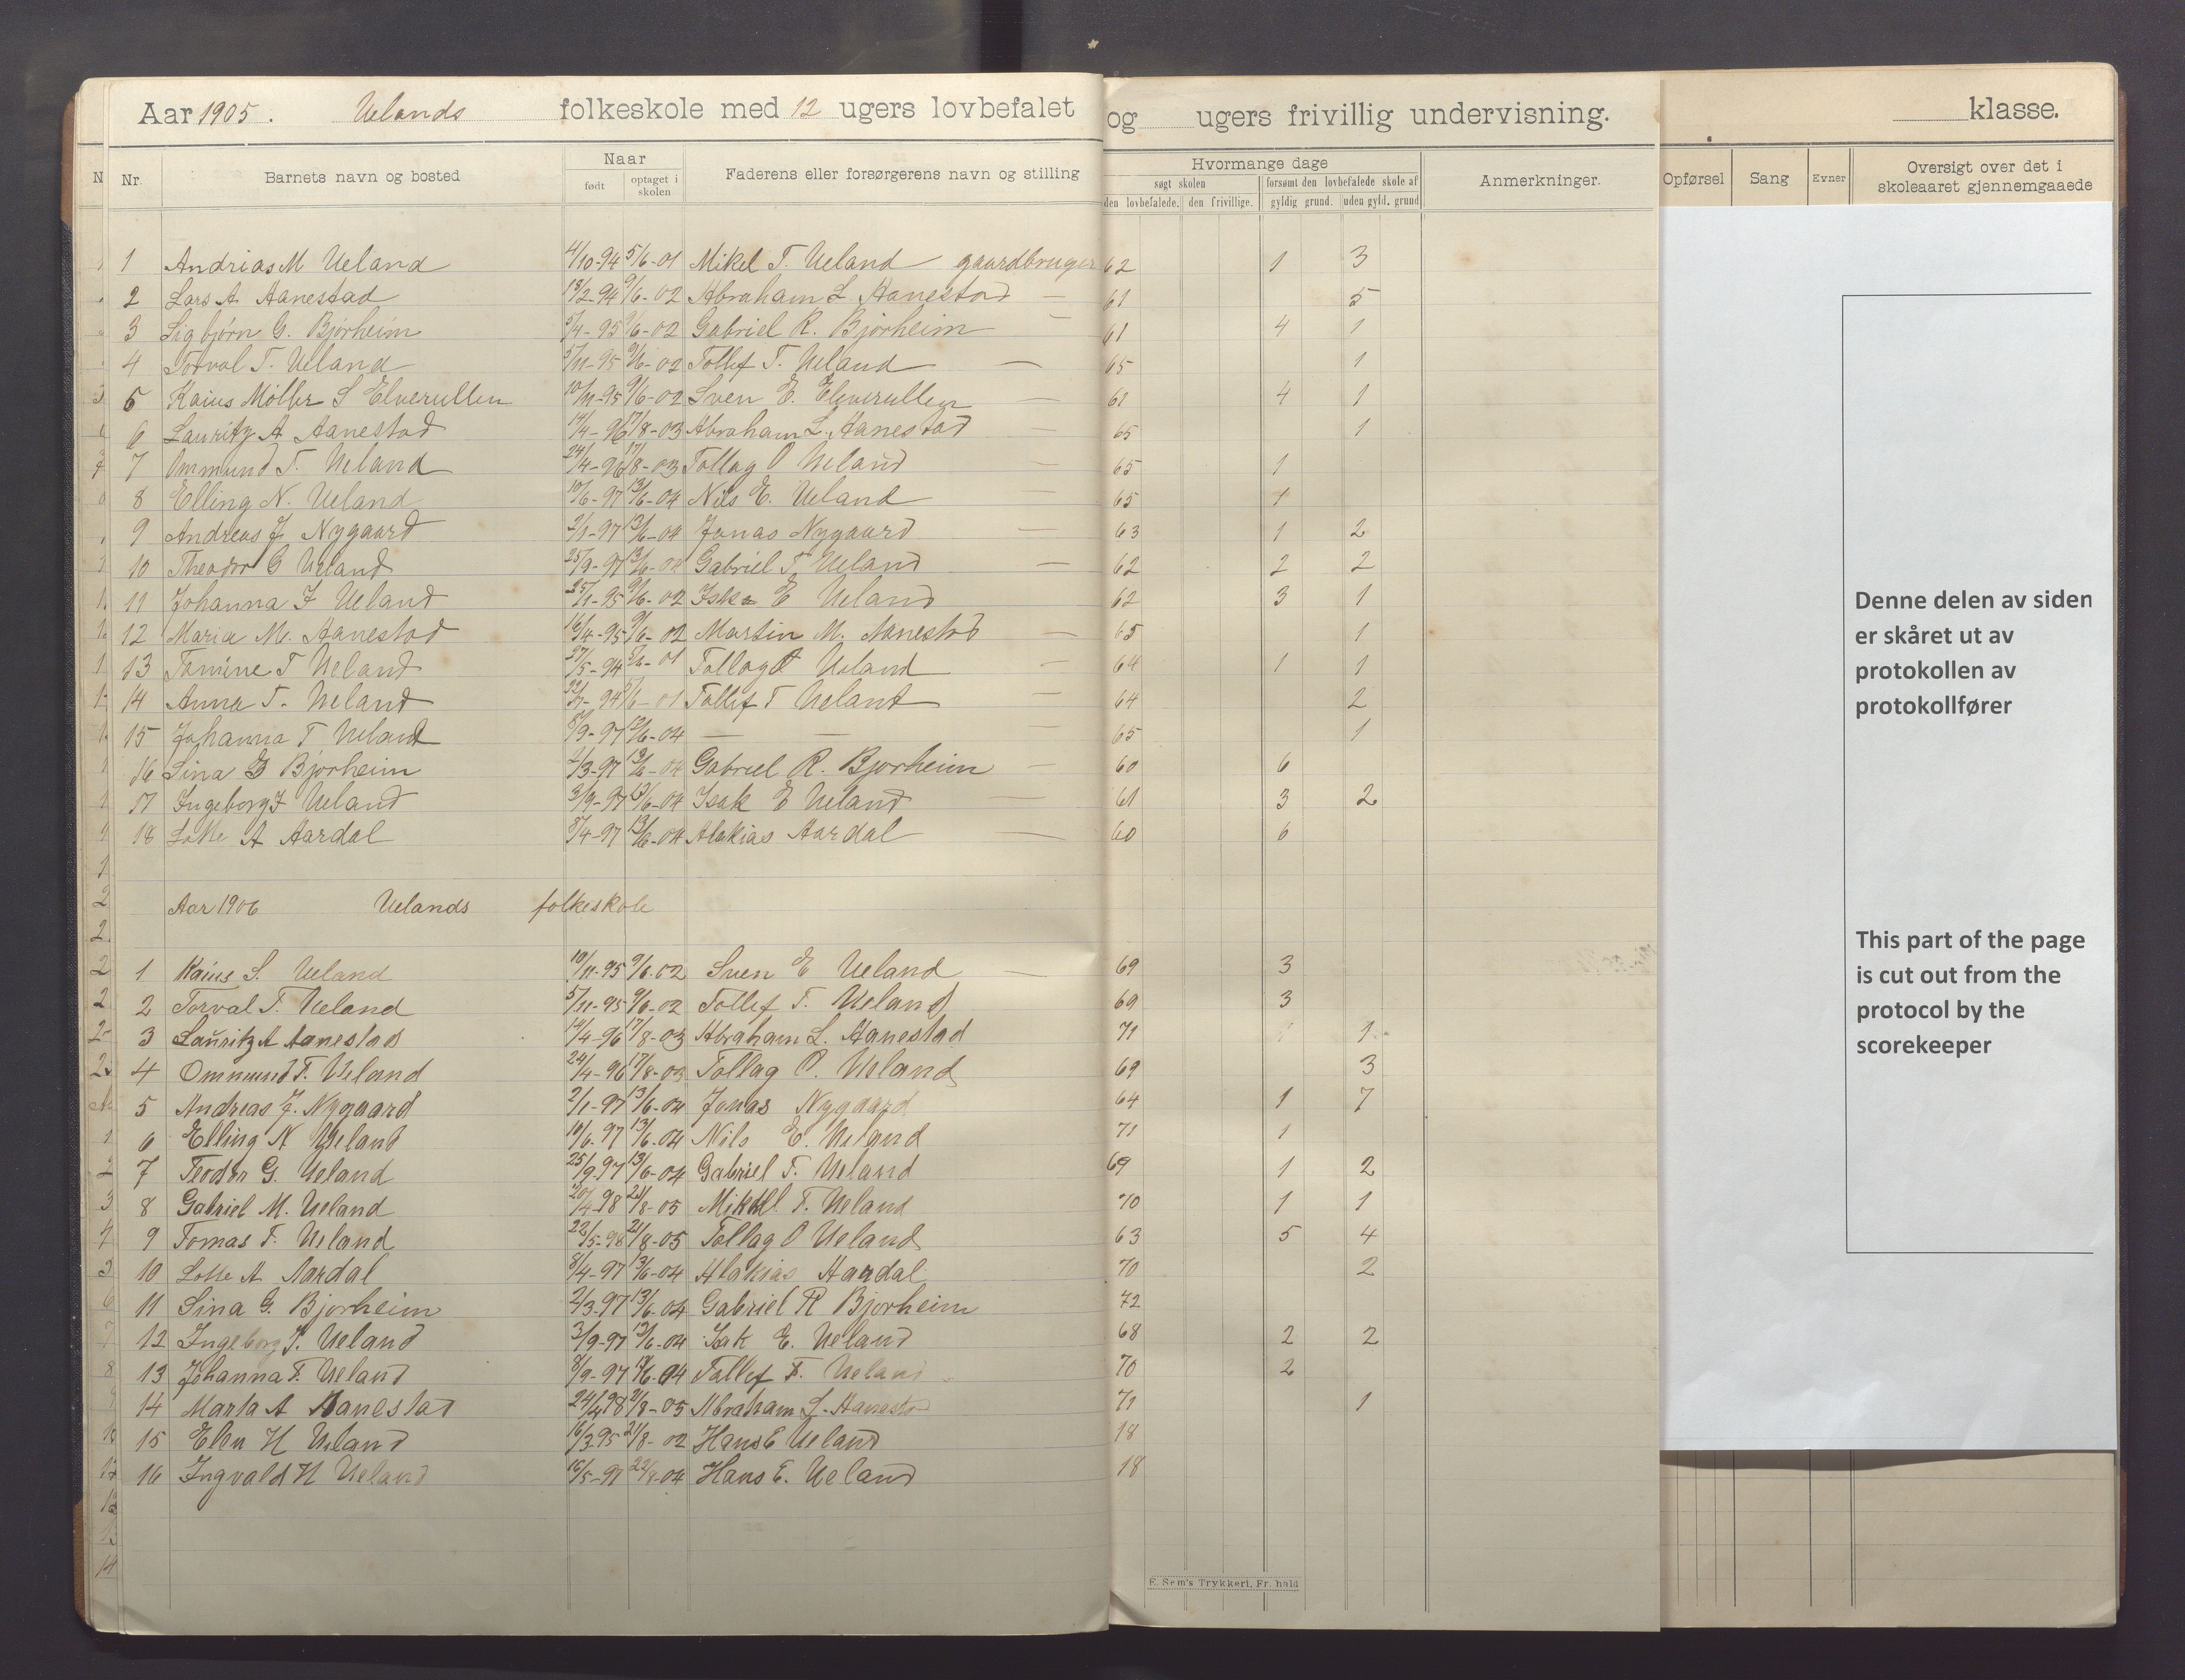 Aar 1905. Uelands folkeskole med 12 ugers lovbefalet og ugers frivillig undervisning. klasse.
Nr. Barnets navn og bosted Naar født optaget i skolen Faderens eller forsørgerens navn og stilling Hvormange dage søgt skolen den lovbefalede. den frivillige. forsømt den lovbefalede skole af gyldig grund. uden gyld. grund Anmerkninger. Opførsel Sang Evner Oversigt over det i skoleaaret gjennemgaaede
1 Andrias M Ueland 4/10-94 5/6-01 Mikel T. Ueland gaardbruger 62 1 3
2 Lars A Aanestad 18/2-94 9/6-02 Abraham L. Aanestad — 61 5
3 Sigbjørn G. Bjørheim 5/4-95 9/6-02 Gabriel R. Bjørheim — 61 4 1
4 Torval T. Ueland 5/11-95 9/6-02 Tollef T. Ueland — 65 1
5 Kaius Møller S Elverullen 10/11-95 9/6-02 Sven E. Elverullen — 61 4 1
6 Lauritz A Aanestad 14/4-96 17/8-03 Abraham L. Aanestad — 65 1
7 Ommund T. Ueland 24/4-96 17/8-03 Tollag O Ueland — 65 1
8 Elling N. Ueland 10/6-97 13/6-04 Nils E. Ueland — 65 1
9 Andreas J. Nygaard 2/1-97 13/6-04 Jonas Nygaard — 63 1 2
10 Theodor G Ueland 25/9-97 13/6-04 Gabriel T. Ueland — 62 2 2
11 Johanna I Ueland 25/1-95 9/6-02 E Ueland 62 3 1
12 Maria M. Aanestad 16/4-95 9/6-02 Martin M. Aanestad — 65 1
13 T Ueland 27/5-94 5/6-01 Tollag O Ueland — 64 1 1
14 Anna T. Ueland 94 5/6-01 Tollef T Ueland — 64 2
15 Johanna T Ueland 8/9-97 13/6-04 — — — 65 1
16 Sina G Bjørheim 2/3-97 13/6-04 Gabriel R. Bjørheim — 60 6
17 Ingeborg I Ueland 3/9-97 13/6-04 Isak E Ueland — 61 3 2
18 Lotte A Aardal 8/4-97 13/6-04 Atakias Aardal — 60 6
Aar 1906 Uelands folkeskole
1 Kaius S. Ueland 10/11-95 9/6-02 Sven E Ueland — 69 3
2 Torval T. Ueland 5/11-95 9/6-02 Tollef T. Ueland 69 3
3 Lauritz A Aanestad 14/4-96 17/8-03 Abraham L. Aanestad 71 1
4 Ommund T. Ueland 24/4-96 17/8-03 Tollag O. Ueland 69 3
5 Andreas J. Nygaard 2/1-97 13/6-04 Jonas Nygaard 64 1 7
6 Elling N Ueland 10/6-97 13/6-04 Nils E. Ueland 71 1
7 Teodor G. Ueland 25/9-97 13/6-04 Gabriel T. Ueland 69 1 2
8 Gabriel M. Ueland 20/4-98 21/8-05 Mikkel T. Ueland 70 1 1
9 Tomas T. Ueland 22/5-98 21/8-05 Tollag O Ueland 63 5 4
10 Lotte A Aardal 8/4-97 13/6-04 Atakias Aardal 70 2
11 Sina G. Bjørheim 2/3-97 13/6-04 Gabriel R Bjørheim 72
12 Ingeborg I. Ueland 3/9-97 13/6-04 Isak E. Ueland 68 2 2
13 Johanna T. Ueland 8/9-97 13/6-04 Tollef T. Ueland 70 2
14 Marta A Aanestad 24/4-98 21/8-05 Abraham L. Aanestad 71 1
15 Elen H Ueland 16/3-95 21/8-02 Hans E Ueland 18
16 Ingvald H Ueland 16/5-97 22/8-04 Hans E. Ueland 18
E. Sem's Trykkeri, Fr.hald
Denne delen av siden
er skåret ut av
protokollen av
protokollfører
This part of the page
is cut out from the
protocol by the
scorekeeper